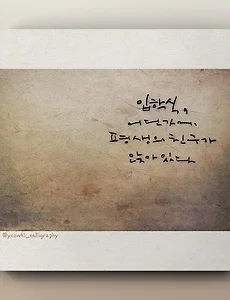 입학식,
어딘가에,
평생의 친구가
앉아있다.
@yeowki_calligraphy